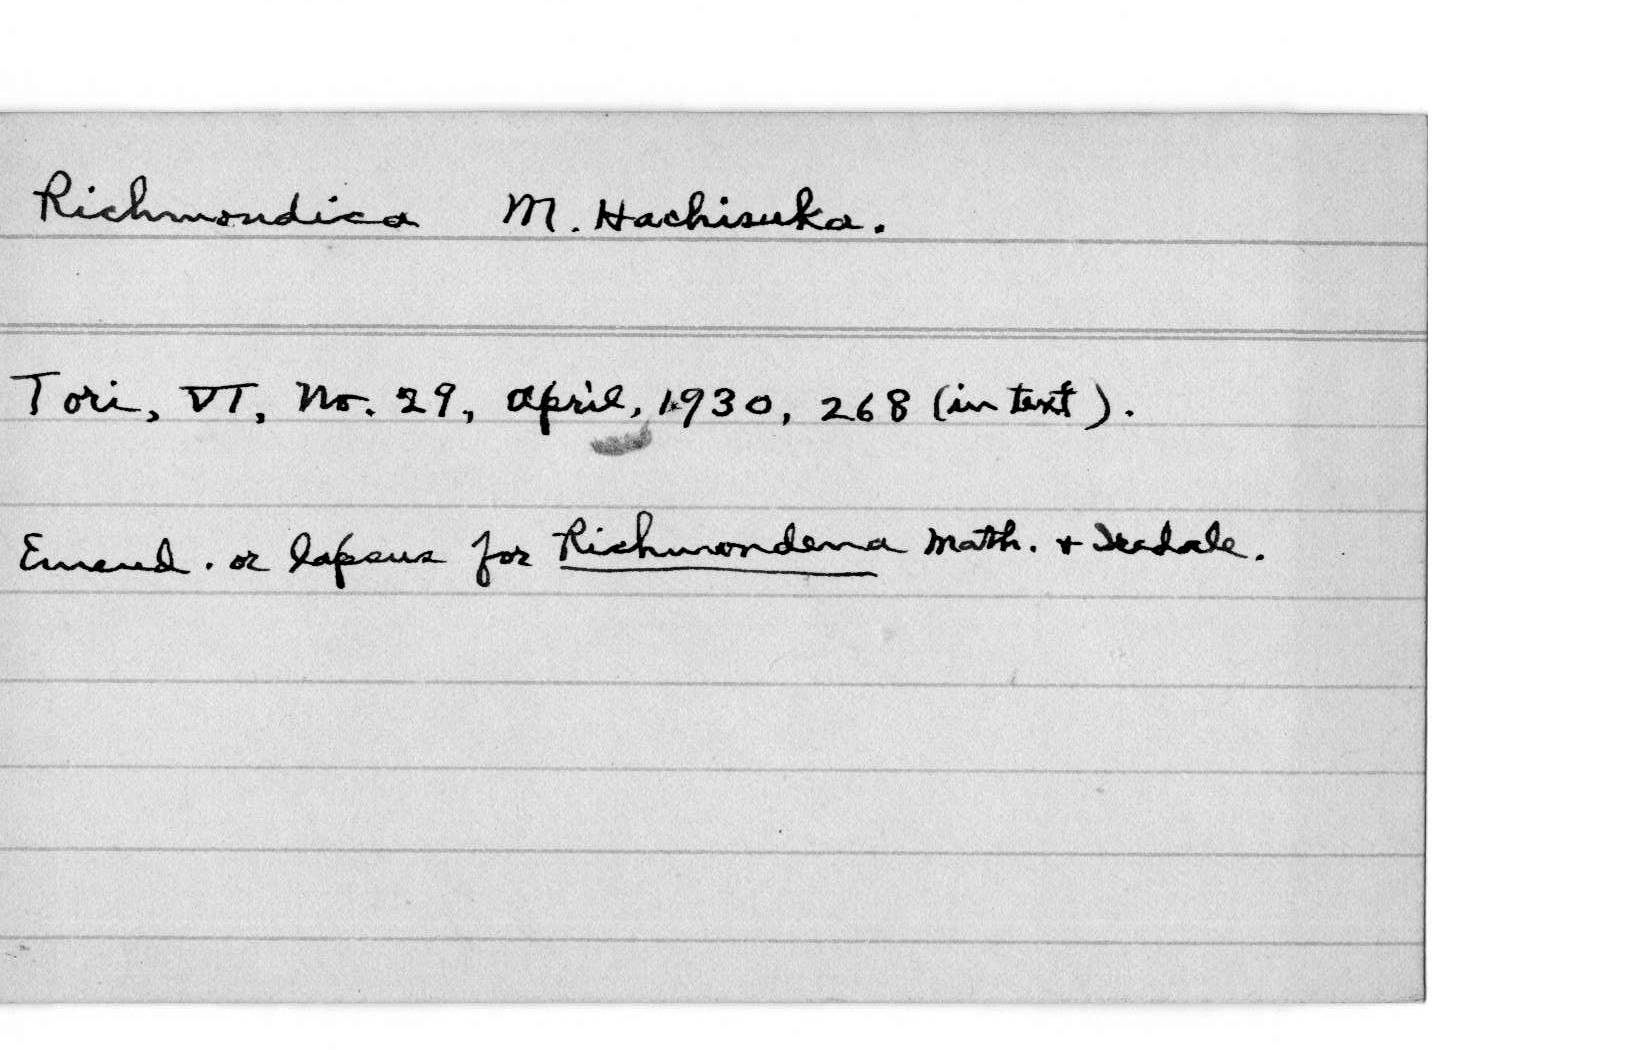 Richmondica M. Hachisuka.
Tori, VI, No. 29, April, 1930, 268 (in text).
Emend. or lapsus for Richmondena Math. & Iredale.